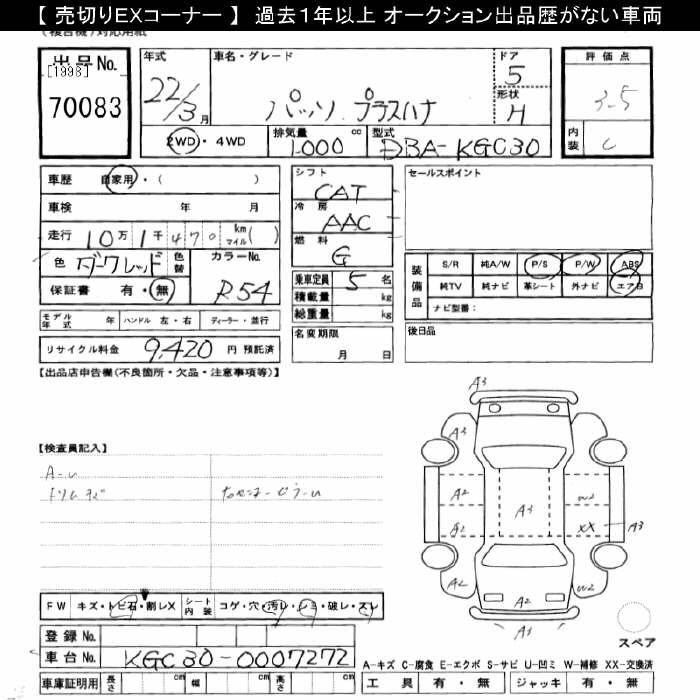 【 売切りEXコーナー 】 過去1年以上 オークション出品歴がない車両
(複合機)対応用紙
出品No. 年式 車名・グレード ドア 評価点
[1998] 22/3月 パッソ プラスハナ 5 3.5
70083 形状 H
2WD・4WD 排気量 1000 cc 型式 DBA-KGC30 内装 C
車歴 自家用・( ) シフト CAT セールスポイント
車検 年 月 冷房 AAC
走行 10万1千470 km マイル( ) 燃料 G
色 ダークレッド 色替 カラーNo. R54
乗車定員 5名 装備品 S/R 純A/W P/S P/W ABS
保証書 有・無 積載量 kg 純TV 純ナビ 革シート 外ナビ エアB
総重量 kg ナビ型番:
モデル年式 年 ハンドル 左・右 ディーラー・並行 名変期限 月 日 後日品
リサイクル料金 9,420 円 預託済
【出品店申告欄(不良箇所・欠品・注意事項等)】
A3
A3 A3
【検査員記入】
A-U
トリムキズ
A2 A3 W2
A2 XX A3
A2 A2 W2
A3
FW キズ・トビ石・割レX シート内装 コゲ・穴・汚レ・シミ・破レ・スレ
スペア
登録No.
車台No. KGC30-0007272
A-キズ C-腐食 E-エクボ S-サビ U-凹ミ W-補修 XX-交換済
車庫証明用 長さ cm 幅 cm 高さ cm 工具 有・無 ジャッキ 有・無